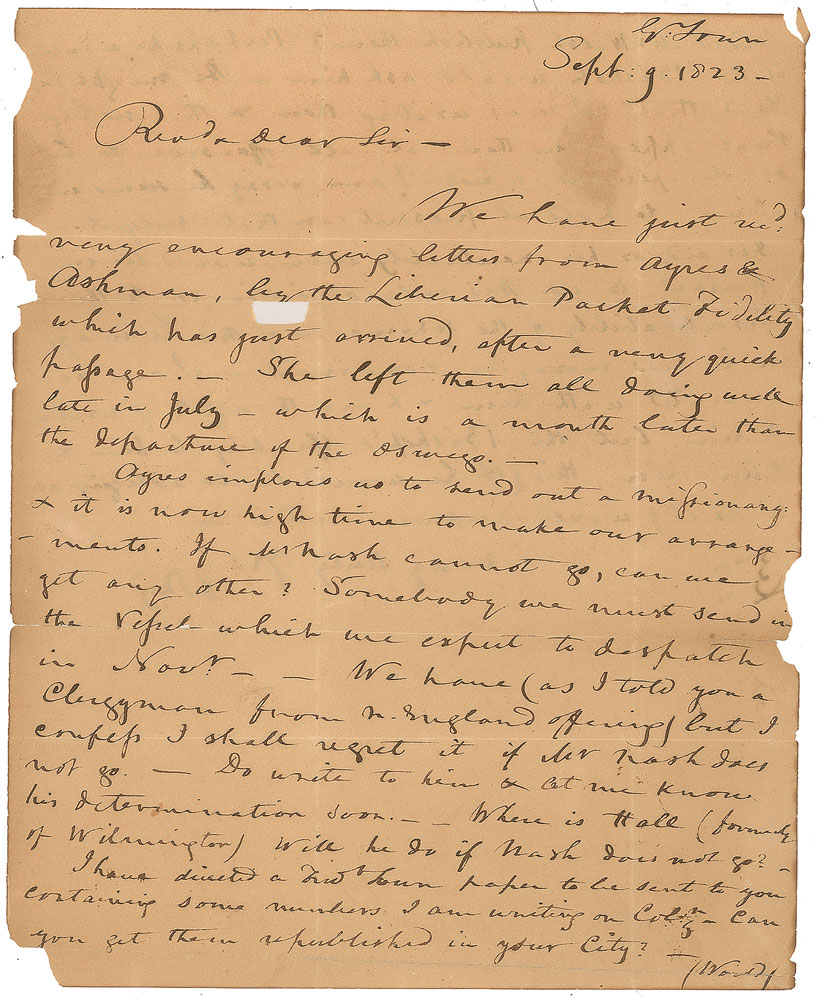 G. Town
Sept: 9. 1823 -
Revd & dear Sir -
We have just recd:
very encouraging letters from Ayres &
Ashman, by the Liberian Packet Fidelity
which has just arrived, after a very quick
passage. - She left them all doing well
late in July - which is a month later than
the departure of the Oswego. -
Ayres implores us to send out a missionary:
& it is now high time to make our arrange-
-ments. If Mr Nash cannot go, can we
get any other? Somebody we must send in
the Vessel which we expect to despatch
in Novr. - - We have (as I told you a
Clergyman from N. England offering) but I
confess I shall regret it if Mr Nash does
not go. - Do write to him & let me know
his determination soon. - - Where is Hall (formerly
of Wilmington) Will he do if Nash does not go? -
I have directed a town paper to be sent to you
containing some numbers I am writing on Colzn - Can
you get them republished in your City? -